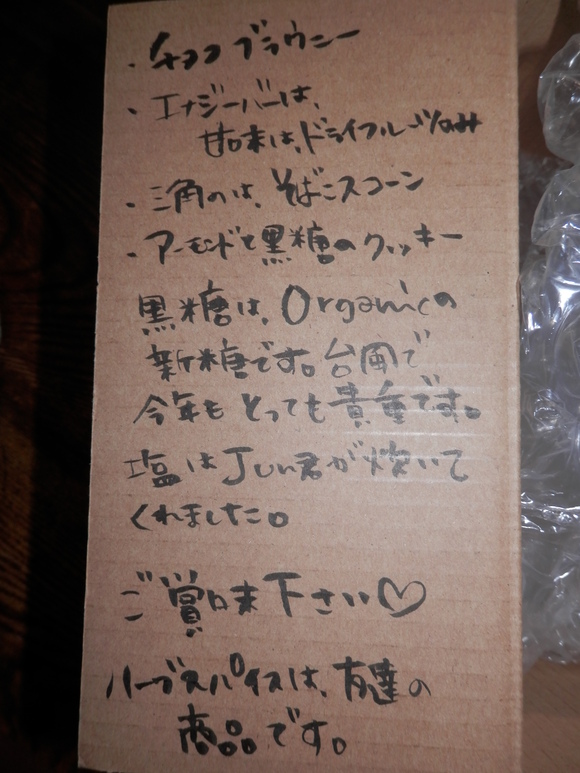 ・チョコブラウニー
・エナジーバーは、
甘味は、ドライフルーツのみ
・三角のは、そばこスコーン
・アーモンドと黒糖のクッキー
黒糖は、Organicの
新糖です。台風で
今年もとっても貴重です。
塩はJun君が炊いて
くれました。
ご賞味下さい♡
ハーブスパイスは、友達の
商品です。